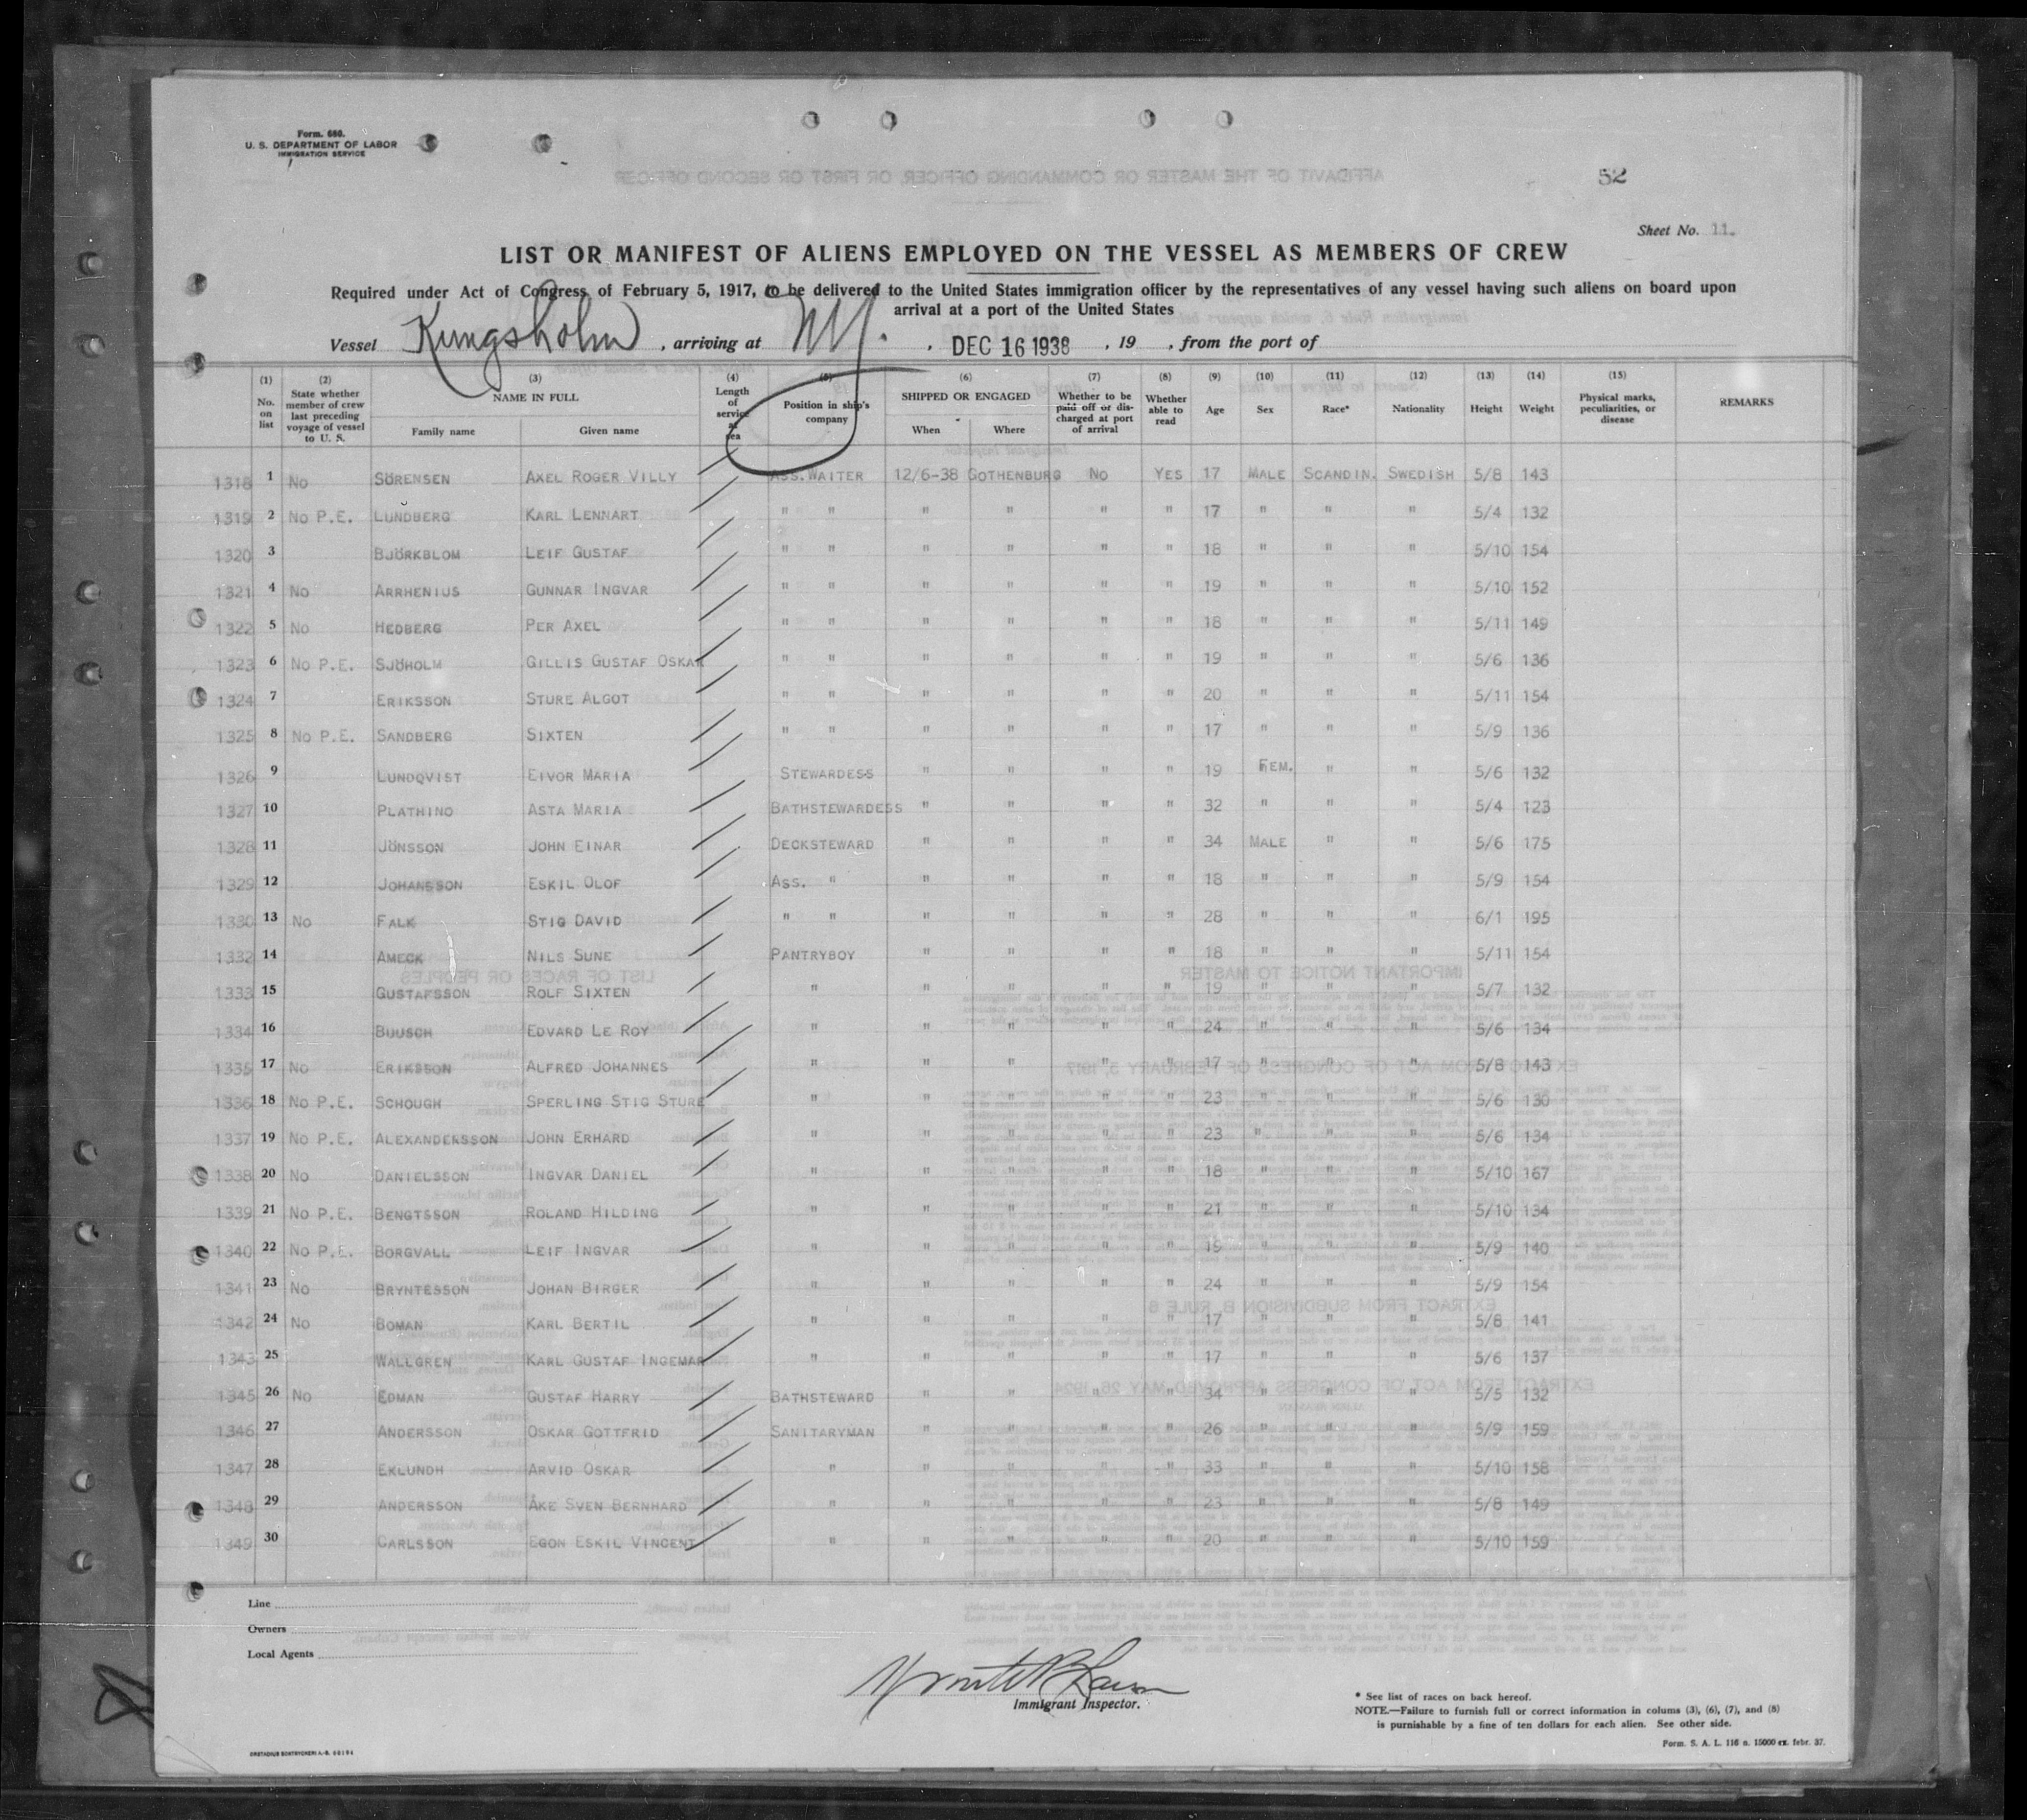 Form. 680.
U. S. DEPARTMENT OF LABOR
IMMIGRATION SERVICE
52
Sheet No. 11.
LIST OR MANIFEST OF ALIENS EMPLOYED ON THE VESSEL AS MEMBERS OF CREW
Required under Act of Congress of February 5, 1917, to be delivered to the United States immigration officer by the representatives of any vessel having such aliens on board upon
arrival at a port of the United States
Vessel Kungsholm , arriving at NY. , DEC 16 1938 , 19 , from the port of
(1) No. on list (2) State whether member of crew last preceding voyage of vessel to U. S. (3) NAME IN FULL Family name Given name (4) Length of service at sea (5) Position in ship's company (6) SHIPPED OR ENGAGED When Where (7) Whether to be paid off or discharged at port of arrival (8) Whether able to read (9) Age (10) Sex (11) Race* (12) Nationality (13) Height (14) Weight (15) Physical marks, peculiarities, or disease REMARKS
1318 1 No SÖRENSEN AXEL ROGER VILLY ASS. WAITER 12/6-38 GOTHENBURG No YES 17 MALE SCANDIN. SWEDISH 5/8 143
1319 2 No P.E. LUNDBERG KARL LENNART " " " " " " 17 " " " 5/4 132
1320 3 BJÖRKBLOM LEIF GUSTAF " " " " " " 18 " " " 5/10 154
1321 4 No ARRHENIUS GUNNAR INGVAR " " " " " " 19 " " " 5/10 152
1322 5 No HEDBERG PER AXEL " " " " " " 18 " " " 5/11 149
1323 6 No P.E. SJÖHOLM GILLIS GUSTAF OSKAR " " " " " " 19 " " " 5/6 136
1324 7 ERIKSSON STURE ALGOT " " " " " " 20 " " " 5/11 154
1325 8 No P.E. SANDBERG SIXTEN " " " " " " 17 " " " 5/9 136
1326 9 LUNDQVIST EIVOR MARIA STEWARDESS " " " " 19 FEM. " " 5/6 132
1327 10 PLATHINO ASTA MARIA BATHSTEWARDESS " " " " 32 " " " 5/4 123
1328 11 JÖNSSON JOHN EINAR DECKSTEWARD " " " " 34 MALE " " 5/6 175
1329 12 JOHANSSON ESKIL OLOF ASS. " " " " " 18 " " " 5/9 154
1330 13 No FALK STIG DAVID " " " " " " 28 " " " 6/1 195
1332 14 AMECK NILS SUNE PANTRYBOY " " " " 18 " " " 5/11 154
1333 15 GUSTAFSSON ROLF SIXTEN " " " " " 19 " " " 5/7 132
1334 16 BUUSCH EDVARD LE ROY " " " " " 24 " " " 5/6 134
1335 17 No ERIKSSON ALFRED JOHANNES " " " " " 17 " " " 5/8 143
1336 18 No P.E. SCHOUGH SPERLING STIG STURE " " " " " 23 " " " 5/6 130
1337 19 No P.E. ALEXANDERSSON JOHN ERHARD " " " " " 23 " " " 5/6 134
1338 20 No DANIELSSON INGVAR DANIEL " " " " " 18 " " " 5/10 167
1339 21 No P.E. BENGTSSON ROLAND HILDING " " " " " 21 " " " 5/10 134
1340 22 No P.E. BORGVALL LEIF INGVAR " " " " " 19 " " " 5/9 140
1341 23 No BRYNTESSON JOHAN BIRGER " " " " " 24 " " " 5/9 154
1342 24 No BOMAN KARL BERTIL " " " " " 17 " " " 5/8 141
1343 25 WALLGREN KARL GUSTAF INGEMAR " " " " " 17 " " " 5/6 137
1345 26 No EDMAN GUSTAF HARRY BATHSTEWARD " " " " 34 " " " 5/5 132
1346 27 ANDERSSON OSKAR GOTTFRID SANITARYMAN " " " " 26 " " " 5/9 159
1347 28 EKLUNDH ARVID OSKAR " " " " " 33 " " " 5/10 158
1348 29 ANDERSSON ÅKE SVEN BERNHARD " " " " " 23 " " " 5/8 149
1349 30 CARLSSON EGON ESKIL VINCENT " " " " " 20 " " " 5/10 159
Line
Owners
Local Agents
Immigrant Inspector.
* See list of races on back hereof.
NOTE.—Failure to furnish full or correct information in colums (3), (6), (7), and (8)
is punishable by a fine of ten dollars for each alien. See other side.
Form. S. A. L. 116 n. 15000 ex. febr. 37.